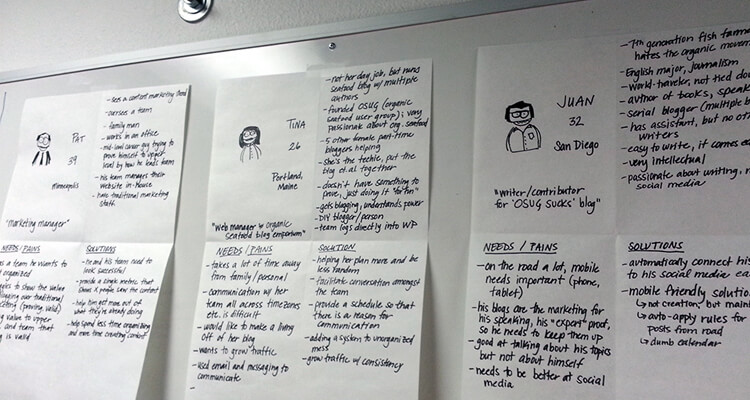 PAT
39
Minneapolis
"Marketing manager"
- sees a content marketing need
- oversees a team
- family man
- works in an office
- mid-level career guy trying to
prove himself to upper
level by how he leads them
- his team manages their
website in-house
- have traditional marketing
staff
NEEDS/PAINS
as a team he wants to
organized
to show the value
blogging over traditional
(proving valid)
value to upper
and team that
is valid
SOLUTIONS
- he and his team need to
look successful
- provide a single metric that
shows
- help him get more out of
what they're already doing
- help spend less time organizing
and more time creating content
TINA
26
Portland,
Maine
"Web manager
organic
seafood blog emporium"
- not her day job, but runs
seafood blog w/ multiple
authors
- founded OSUG (organic
seafood user group); very
passionate about org. seafood
- 5 other female part-time
bloggers helping
- She's the techie, put the
blog et.al together
- doesn't have something to
prove, just doing it "for fun"
- gets blogging, understands power
- DIY blogger/person
- team logs directly into WP
NEEDS/PAINS
- takes a lot of time away
from family/personal
- communication w/ her
team all across timezones
etc. is difficult
- would like to make a living
off of her blog
- wants to grow traffic
- used email and messaging to
communicate
-
SOLUTION
- helping her plan more and be
less random
- facilitate conversation amongst
the team
- provide a schedule so that
there is a reason for
communication
- adding a system to unorganized
mess
- grow traffic w/ consistency
JUAN
32
San Diego
"Writer/contributor
for 'OSUG SUCKS' blog"
- 7th generation fish
hates the organic
- English major, journalism
- World-traveler, not tied
- author of books,
- serial blogger (multiple
- has assistant, but no
writers
- easy to write, it comes
- very intellectual
- passionate about writing,
social media
NEEDS / PAINS
- on the road a lot, mobile
needs important (phone,
tablet)
- his blogs are the marketing for
his speaking, his "expert" proof,
so he needs to keep them up
- good at talking about his topics
but not about himself
- needs to be better at social
media
SOLUTIONS
- automatically connect his
to his social media
- mobile friendly
↳ not creation, but
↳ auto-apply rules for
posts from road
↳ dumb calendar